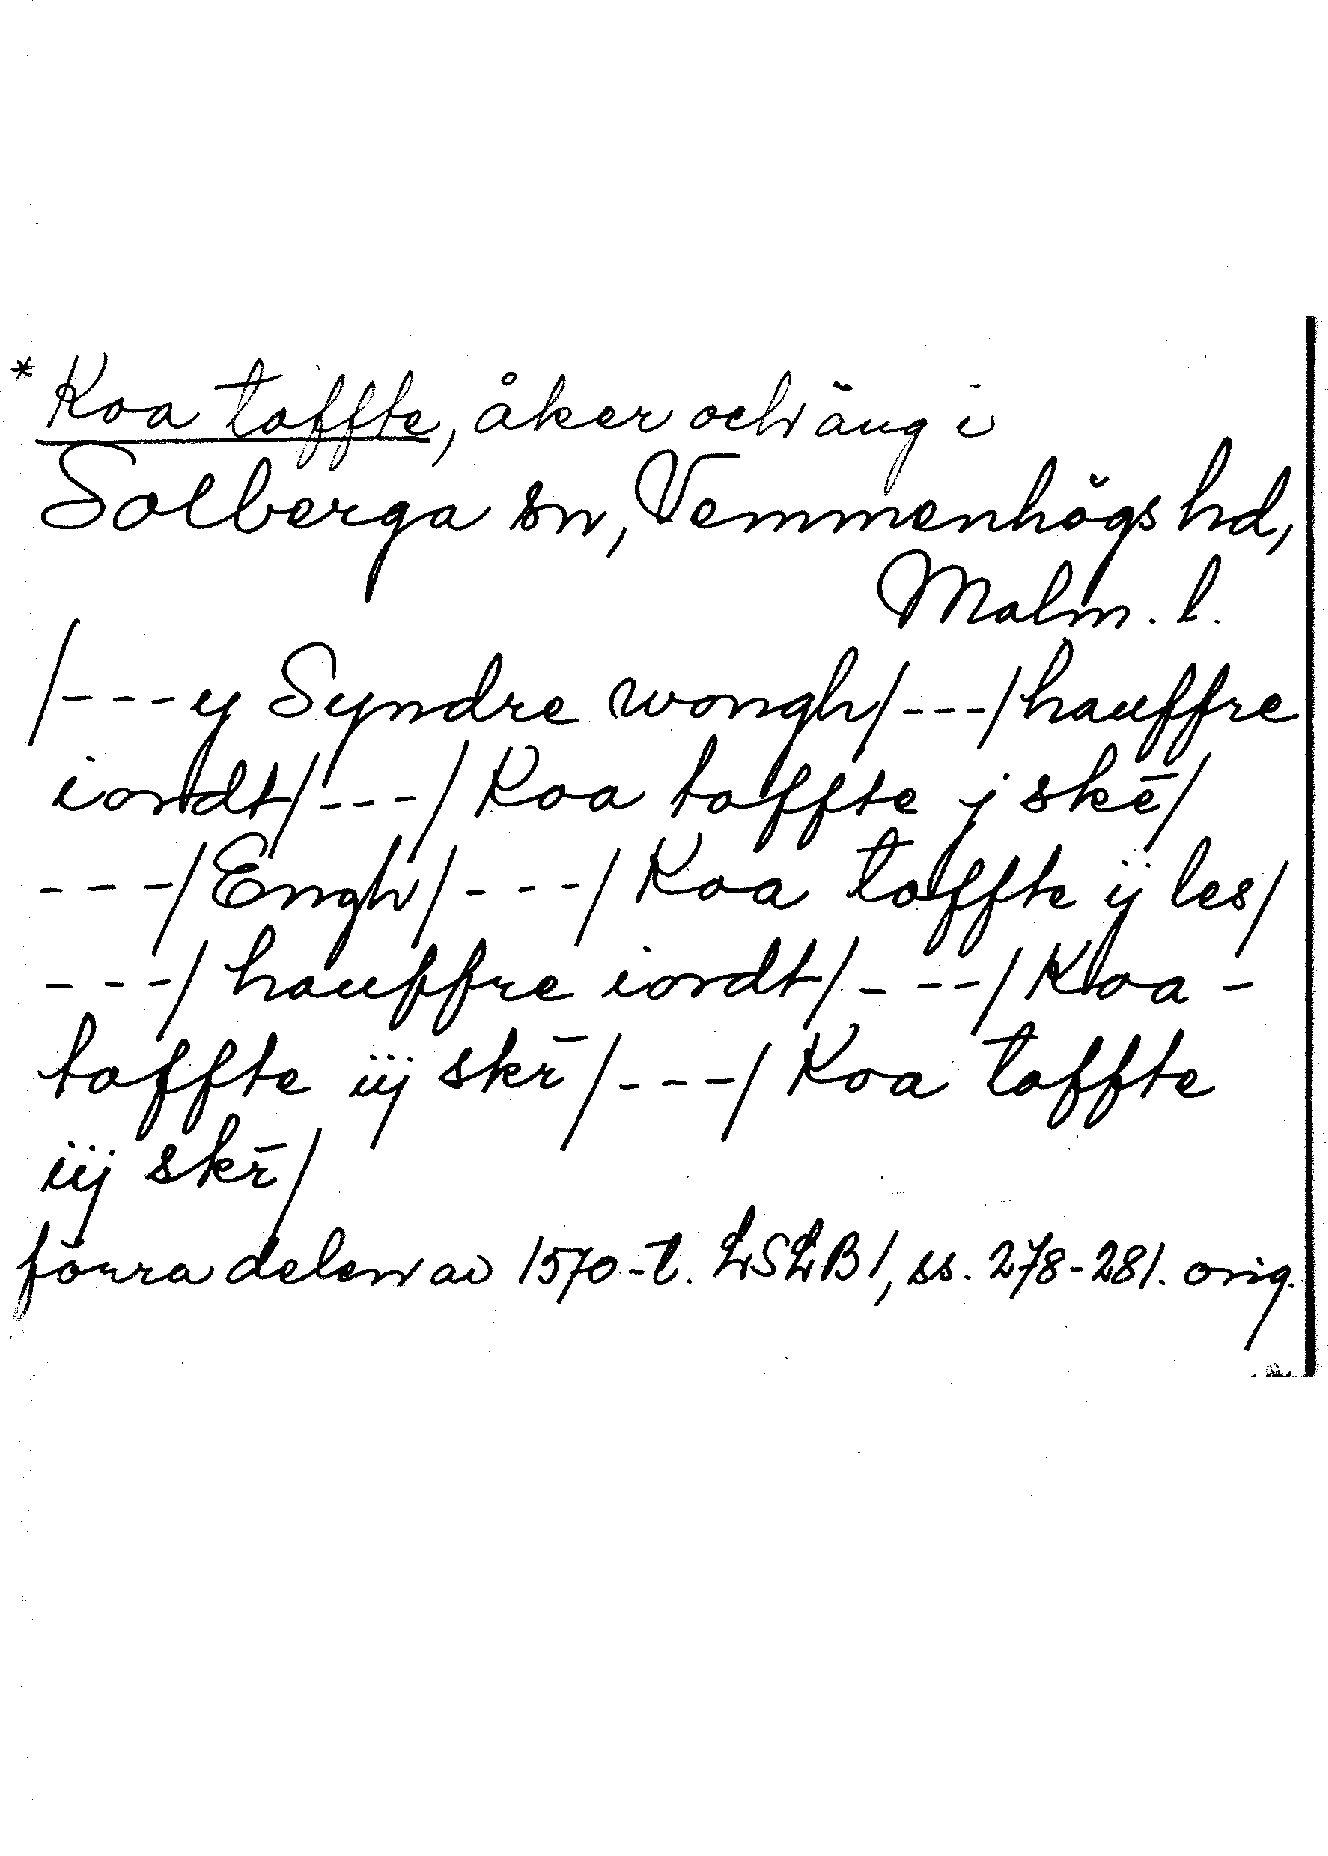 * Koa toffte, åker och äng i
Solberga sn, Vemmenhögs hd,
Malm. l.
/---y Syndre wongh/---/hauffre
iordt/---/Koa toffte j skē/
---/Engh/---/Koa toffte ÿ les/
---/hauffre iordt/---/Koa-
toffte iij skr̄/---/Koa toffte
iij skr̄/
förra delen av 1570-t. LSLB 1, ss. 278-281. orig.